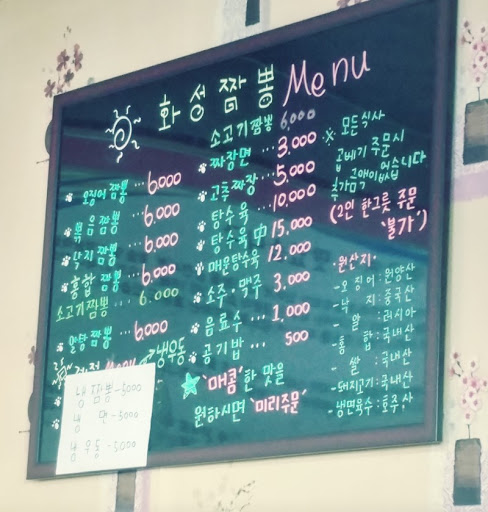 화성짬뽕 Menu
오징어짬뽕 ... 6,000
볶음짬뽕 ... 6,000
낙지짬뽕 ... 6,000
홍합짬뽕 ... 6,000
소고기짬뽕 ... 6.000
알탕짬뽕 ... 6,000
냉우동
냉 짬뽕 - 5000
냉 면 - 5000
냉 우동 - 5000
소고기짬뽕 6,000
짜장면 ... 3,000
고추짜장 ... 5,000
탕수육 ... 10,000
탕수육 中 15,000
매운탕수육 12,000
소주·맥주 3,000
음료수 ... 1,000
공기밥 ... 500
'매콤'한 맛을
원하시면 '미리주문'
※ 모든식사
곱베기 주문시
추가금액이 없습니다
(2인 한그릇 주문
'불가')
·원산지·
- 오징어 : 원양산
- 낙지 : 중국산
- 알 : 러시아
- 홍합 : 국내산
- 쌀 : 국내산
- 돼지고기 : 국내산
- 냉면육수 : 호주산